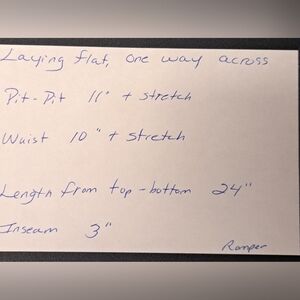 Laying flat, one way across
Pit-Pit 11" + stretch
Waist 10" + stretch
Length from top-bottom 24"
Inseam 3"
Romper